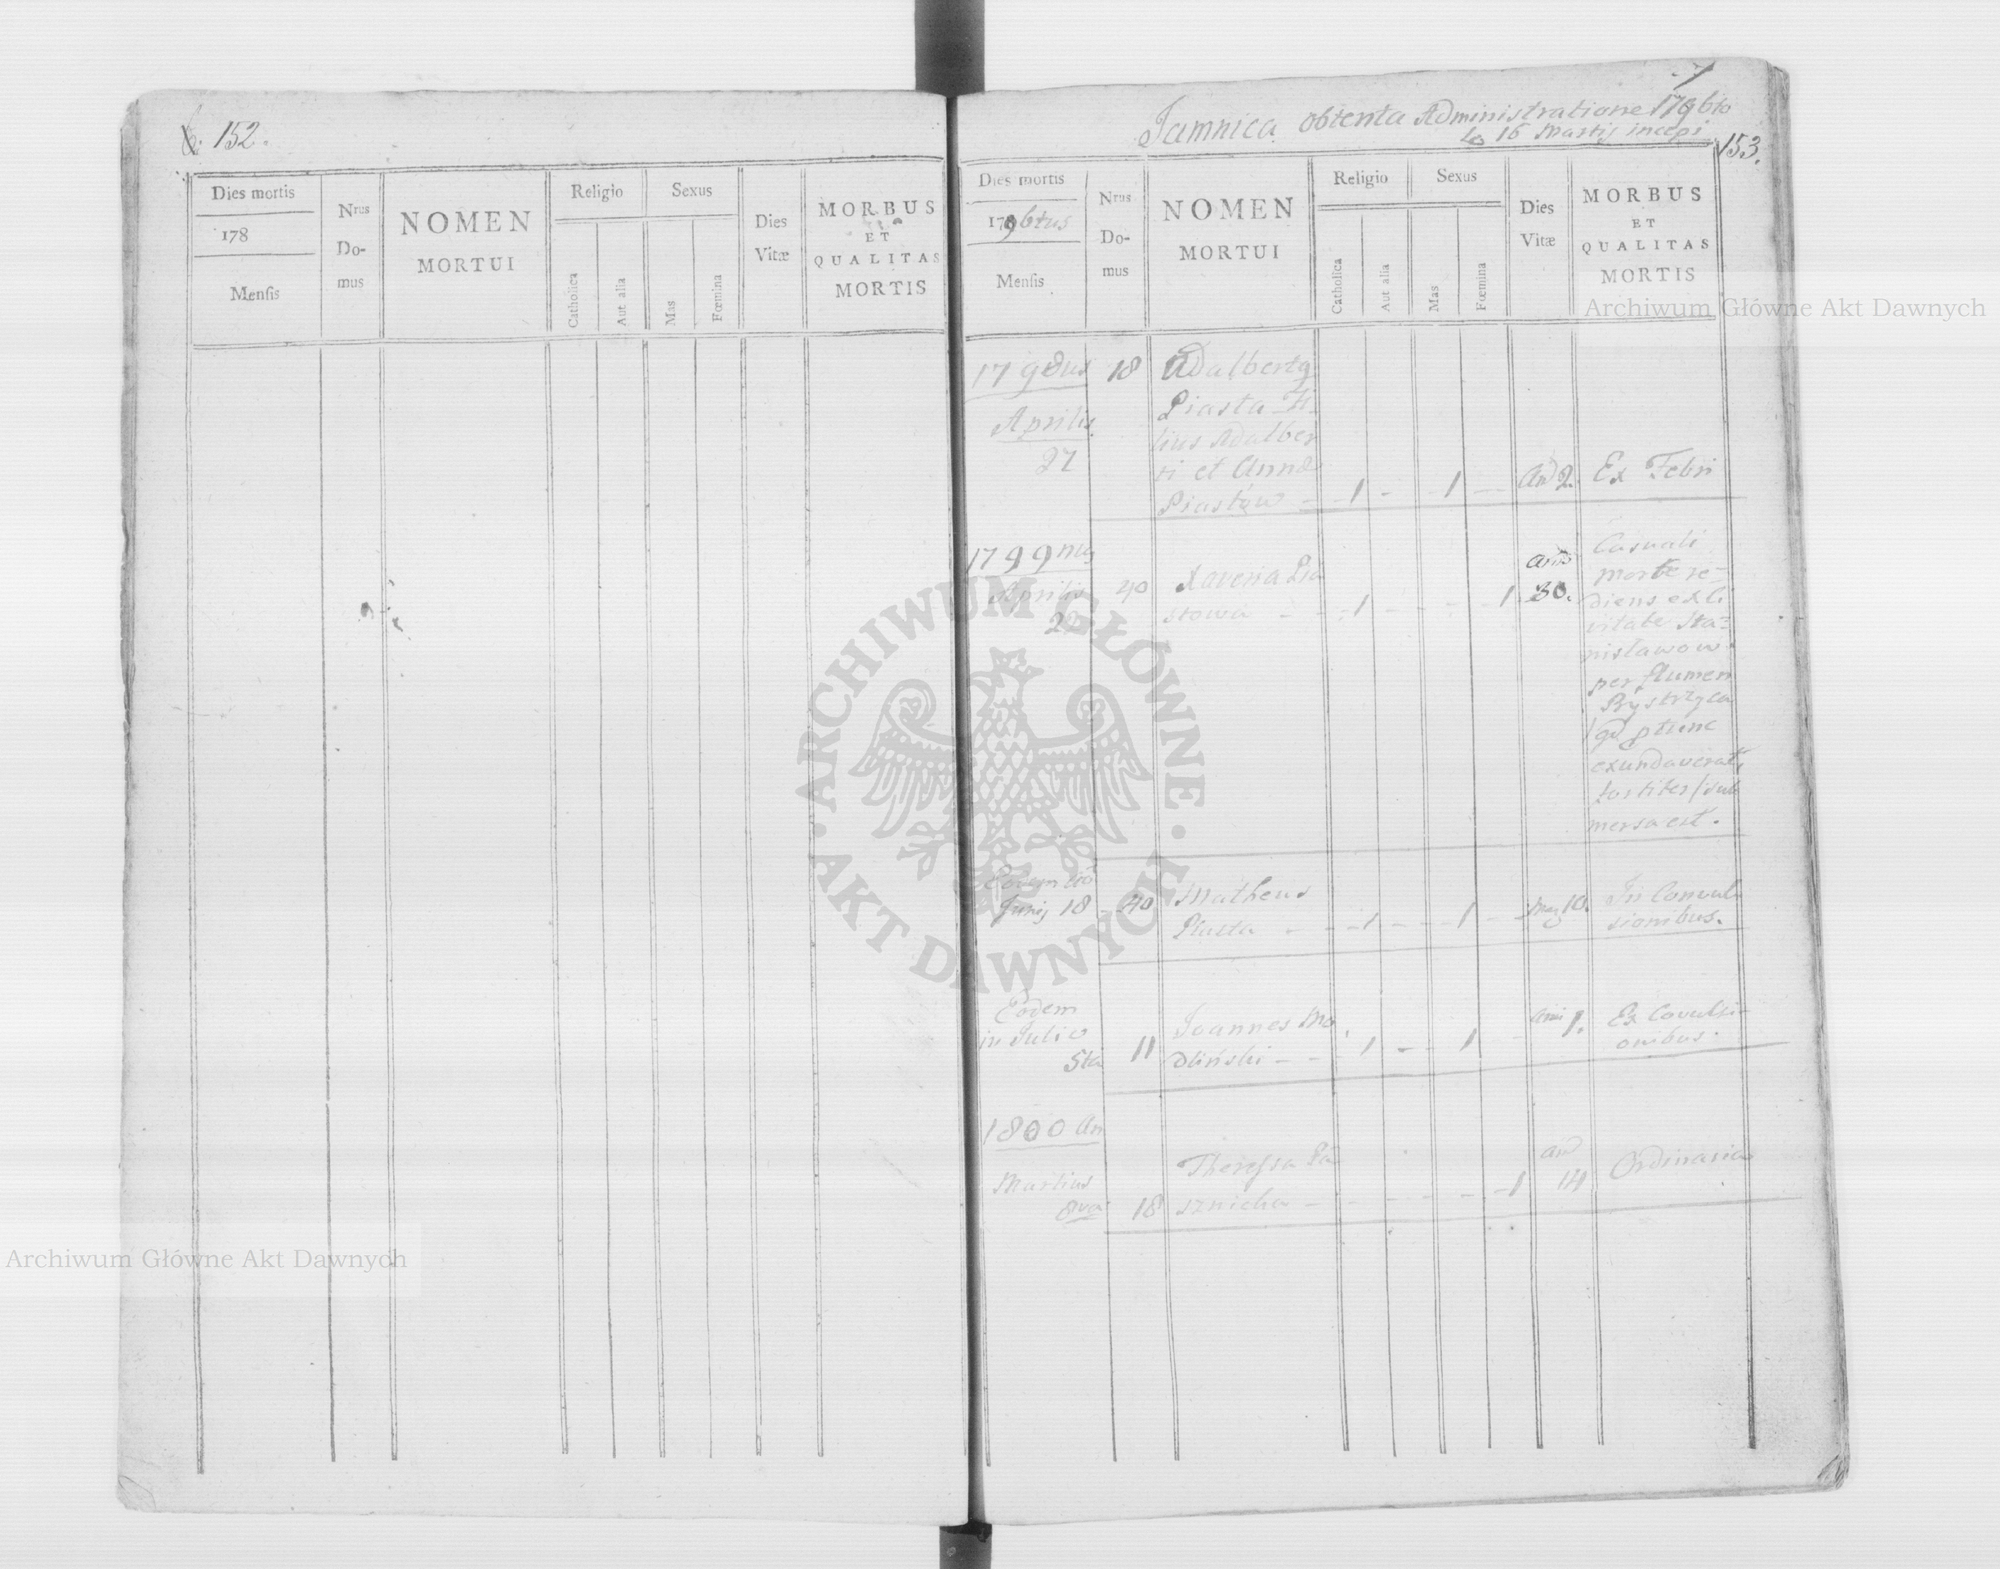 152.
Dies mortis
178
Mensis
Nrus
Do-
mus
NOMEN
MORTUI
Religio
Catholica
Aut alia
Sexus
Mas
Fœmina
Dies
Vitæ
MORBUS
ET
QUALITAS
MORTIS
Jamnica obtenta Administratione 1796to
16 Martij incepi
153.
Dies mortis
1796tus
Mensis
Nrus
Do-
mus
NOMEN
MORTUI
Religio
Catholica
Aut alia
Sexus
Mas
Fœmina
Dies
Vitæ
MORBUS
ET
QUALITAS
MORTIS
18 Adalbertq
Aprilis Piasta Fi-
lius Adalber
27 ti et Annæ
Piastow - - 1 - - 1 - - 2. Ex Febri
1799nus
Aprilis 40 Xaveria Pia
22 stowa - - 1 - - - 1 30.
Casuali
morte re-
diens ex Ci
vitate Sta-
nislawow
per flumen
Bystrzyca
exundaverat
fortiter / sub
mersa est.
Eodem
Junij 18 40 Matheus
Piasta - - 1 - - 1 - - 10. In Convul
sionibus.
Eodem
in Julio
5ta 11 Joannes Mo
dliński - - 1 - - 1 - - 1. Ex Covulsi-
onibus.
1800
Martius
8va 18 Theressa Pa
sznicha - - - - - 1 14 Ordinaria
Archiwum Główne Akt Dawnych
ARCHIWUM GŁÓWNE AKT DAWNYCH
Archiwum Główne Akt Dawnych